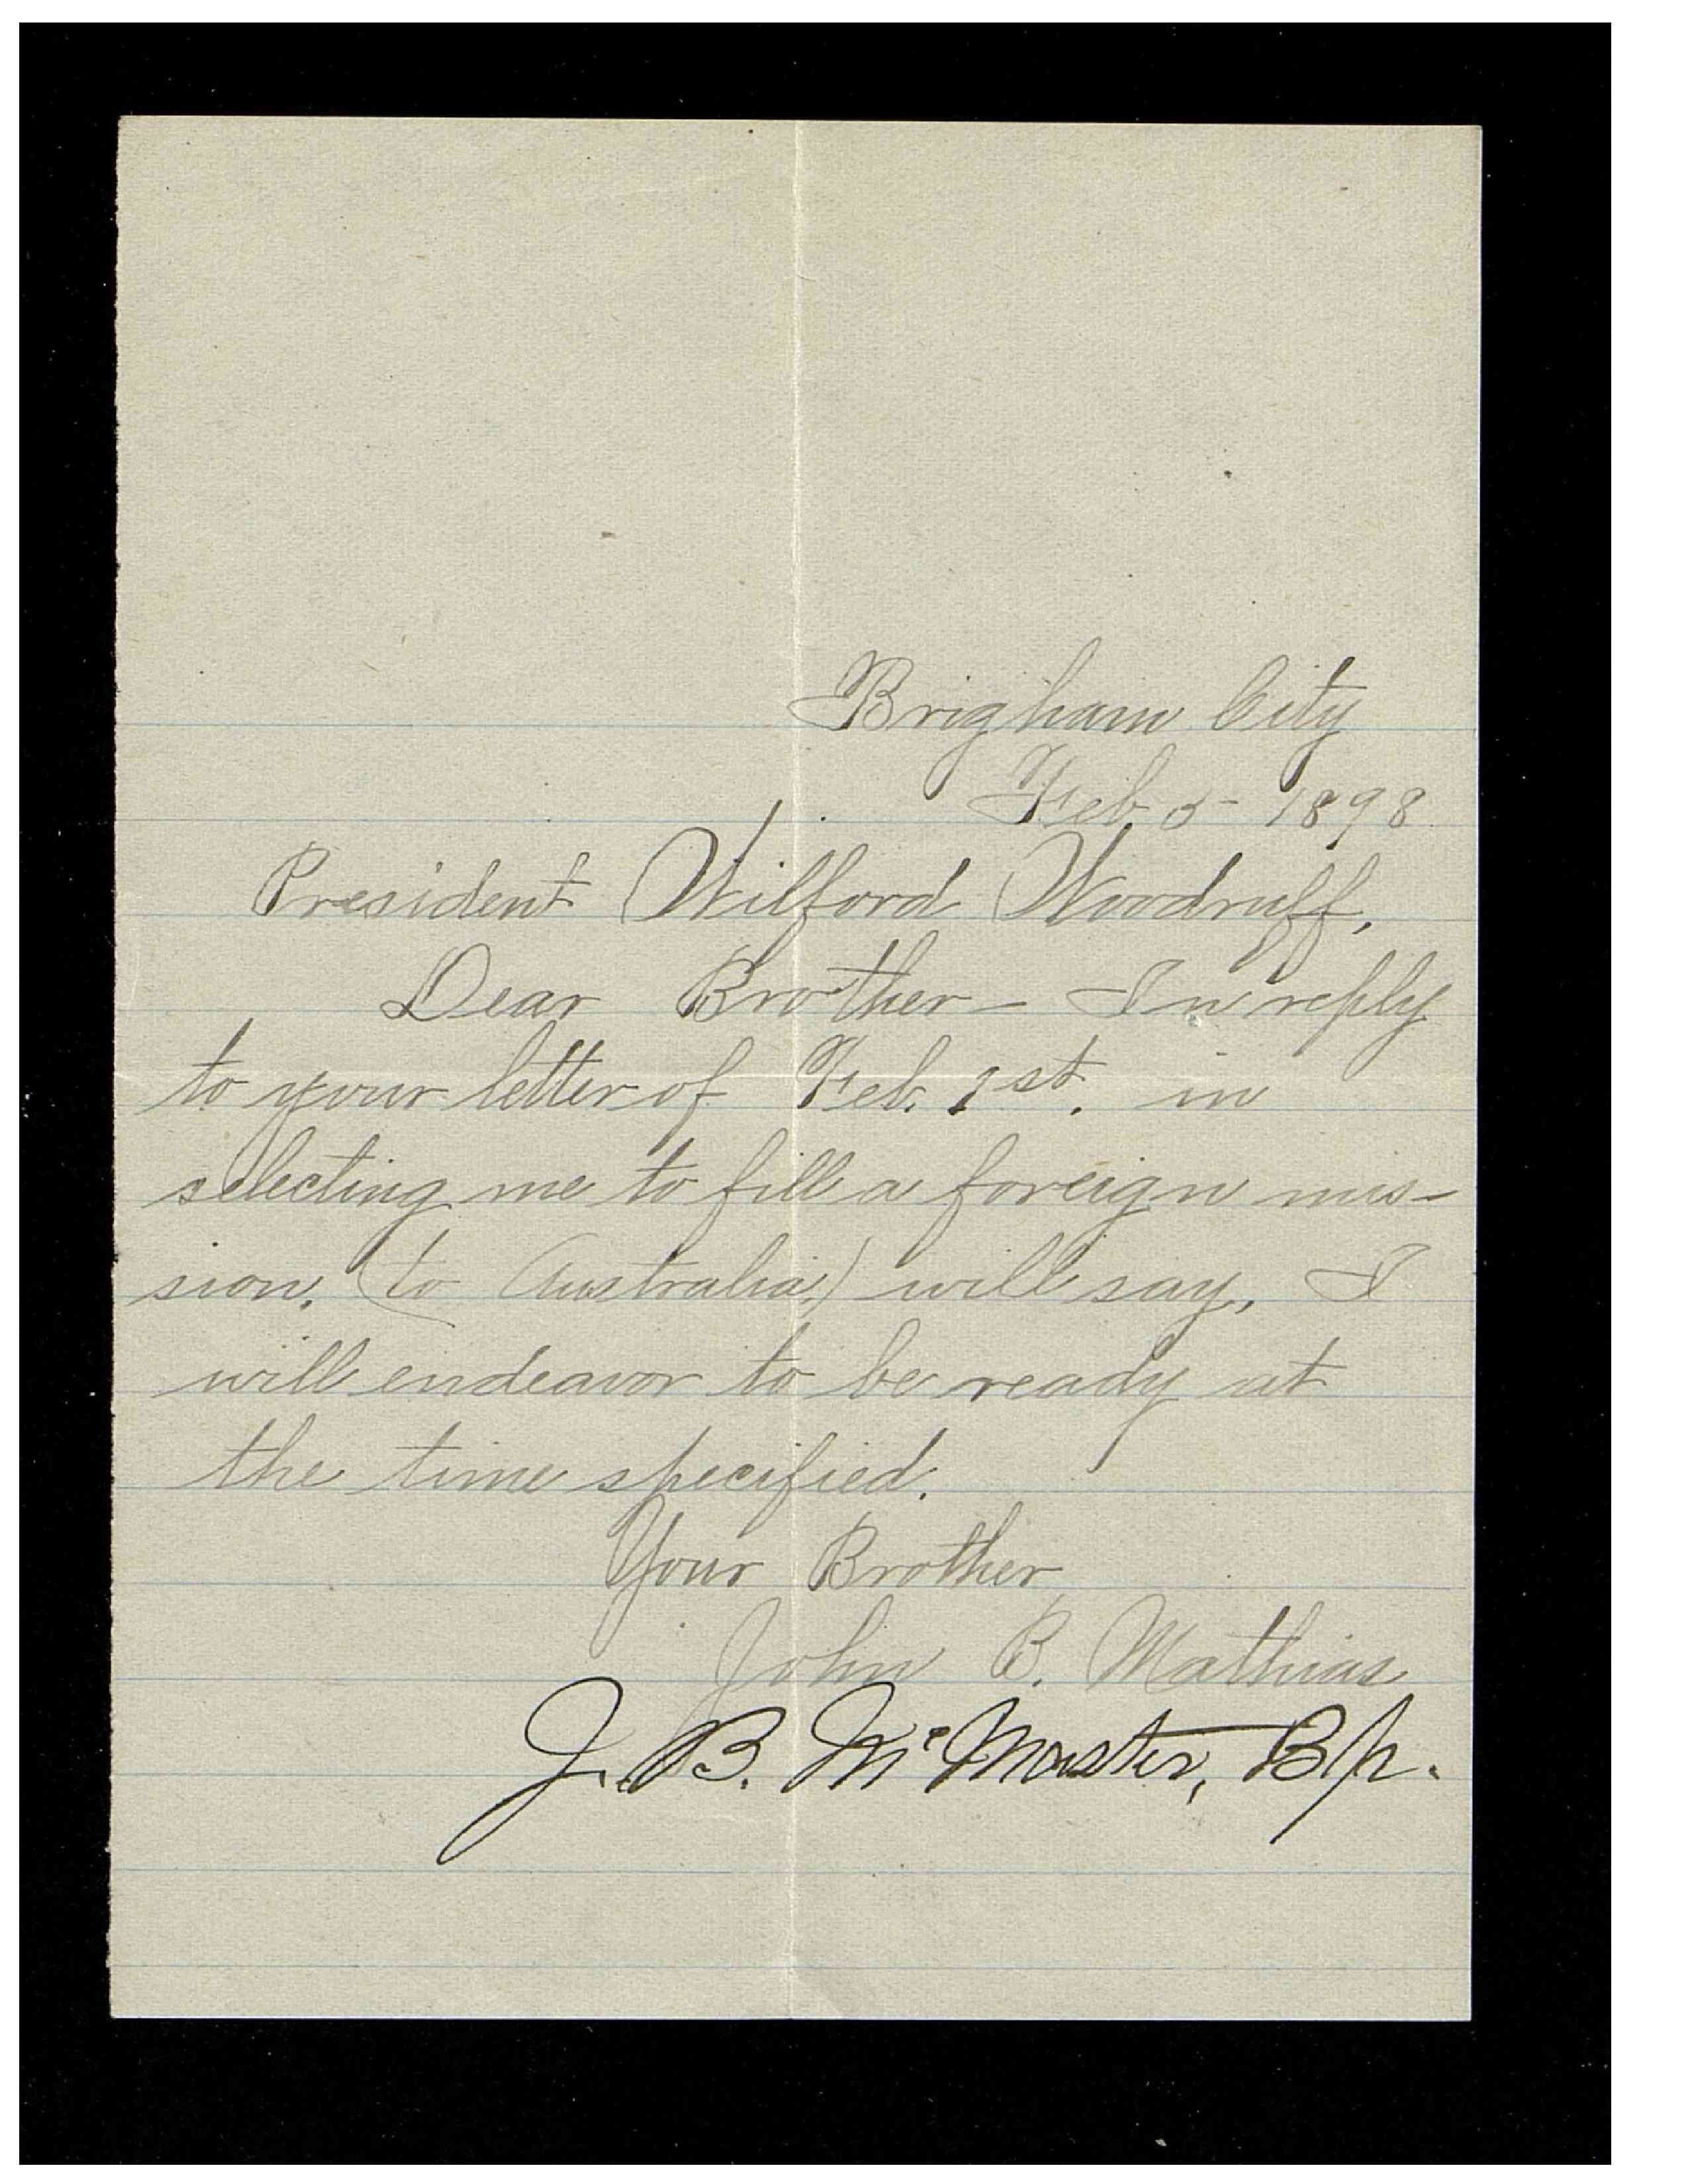 Brigham City
Feb 5- 1898
President Wilford Woodruff,
Dear Brother- In reply
to your letter of Feb. 1st. in
selecting me to fill a foreign mis-
sion, (to Australia) will say, I
will endeavor to be ready at
the time specified.
Your Brother
John B. Mathias
J. B. McMaster, Bp.